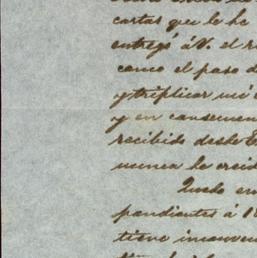 cartas que le he
entregó á V. el r
como el paso d
y triplicar mi
y en consecuen
recibido desde E
nunca he creid
Quedo en
pondientes á 18
tiene inconven